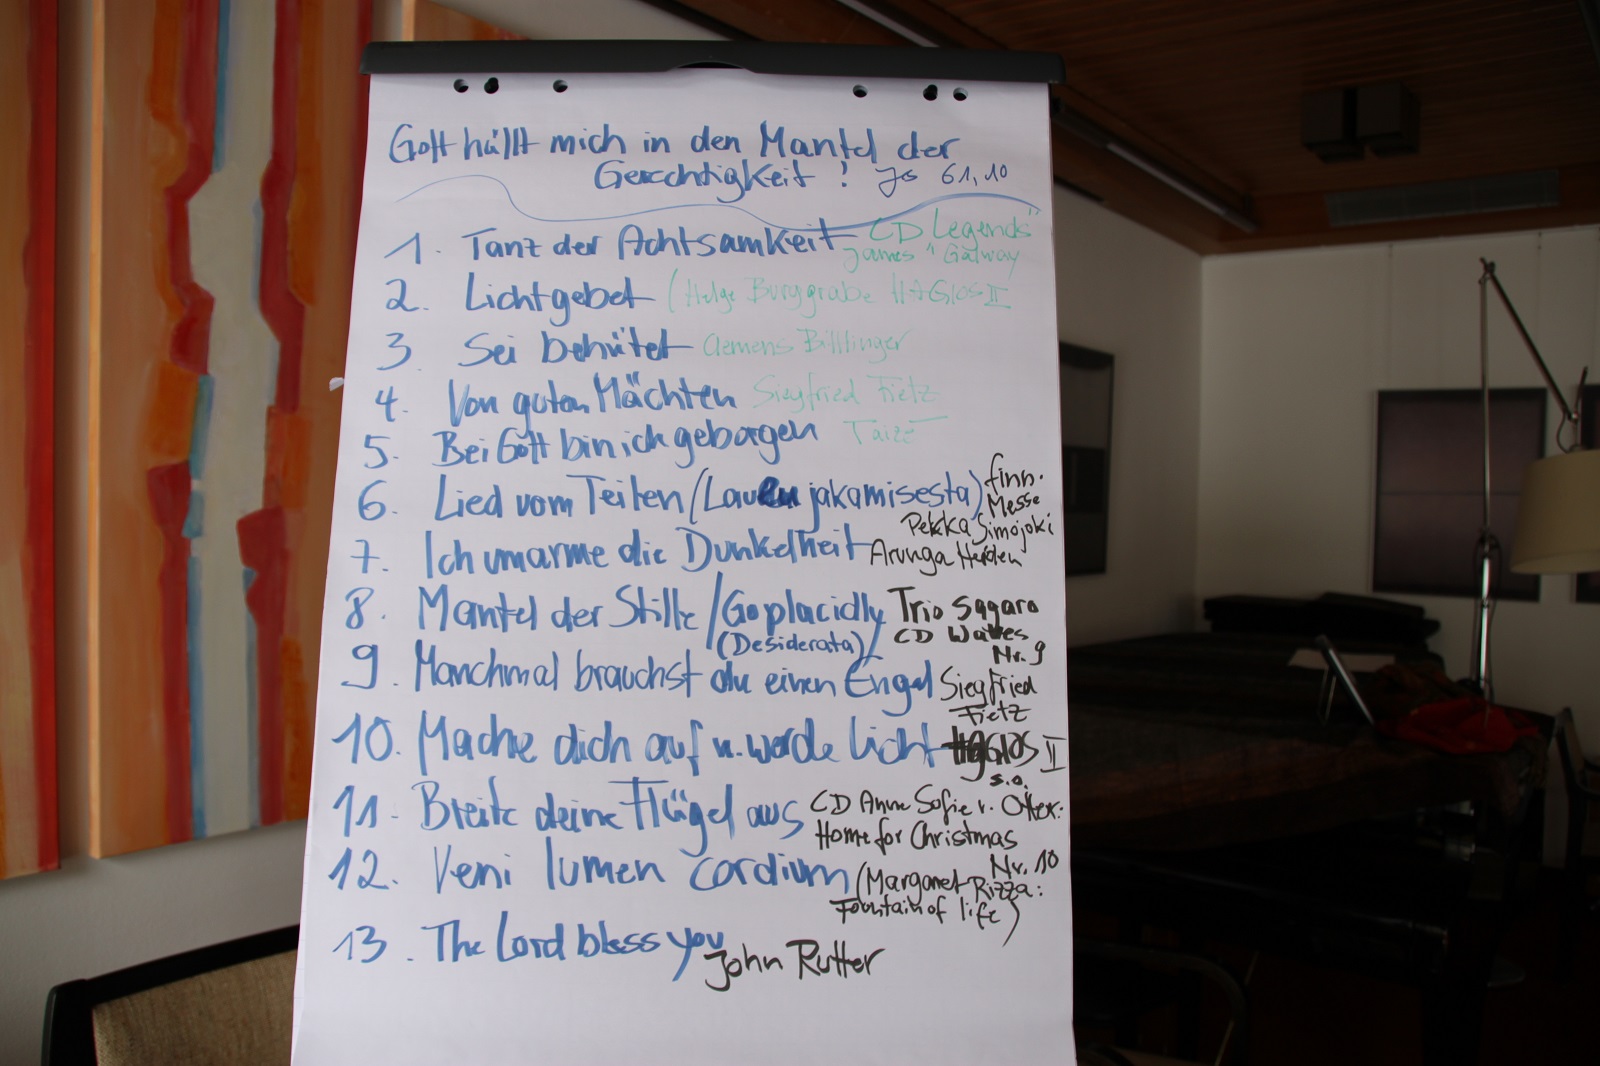 Gott hüllt mich in den Mantel der
Gerechtigkeit! Jes 61,10
1. Tanz der Achtsamkeit CD "Legends"
James Galway
2. Lichtgebet (Helge Burggrabe HAGIOS II
3 Sei behütet Clemens Billlinger
4. Von guten Mächten Siegfried Fietz
5. Bei Gott bin ich geborgen Taizé
6. Lied vom Teilen (Laulu jakamisesta) finn.
Messe
Pekka Simojoki
7. Ich umarme die Dunkelheit Arunga Heiden
8. Mantel der Stille / Go placidly Trio Sagaro
(Desiderata) CD Waves
Nr. 9
9. Manchmal brauchst du einen Engel Siegfried
Fietz
10. Mache dich auf u. werde Licht HAGIOS II
s.o.
11. Breite deine Flügel aus CD Anne Sofie v. Otter:
Home for Christmas
Nr. 10
12. Veni lumen cordium (Margaret Rizza:
Fountain of life)
13. The Lord bless you John Rutter